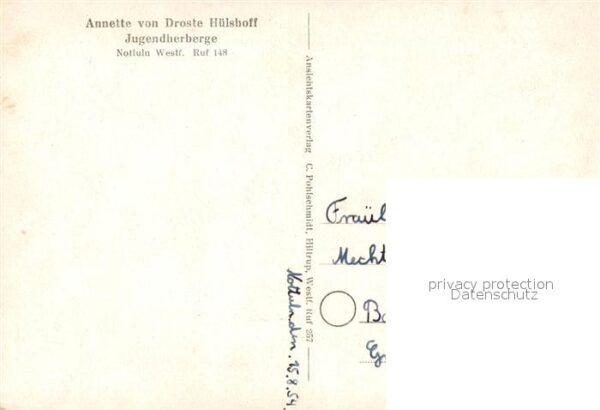 Annette von Droste Hülshoff
Jugendherberge
Nottuln Westf. Ruf 148
Ansichtskartenverlag C. Pohlschmidt, Hiltrup, Westf. Ruf 257
Nottuln, den 15.8.54.
Fräul
Mecht
privacy protection
Datenschutz